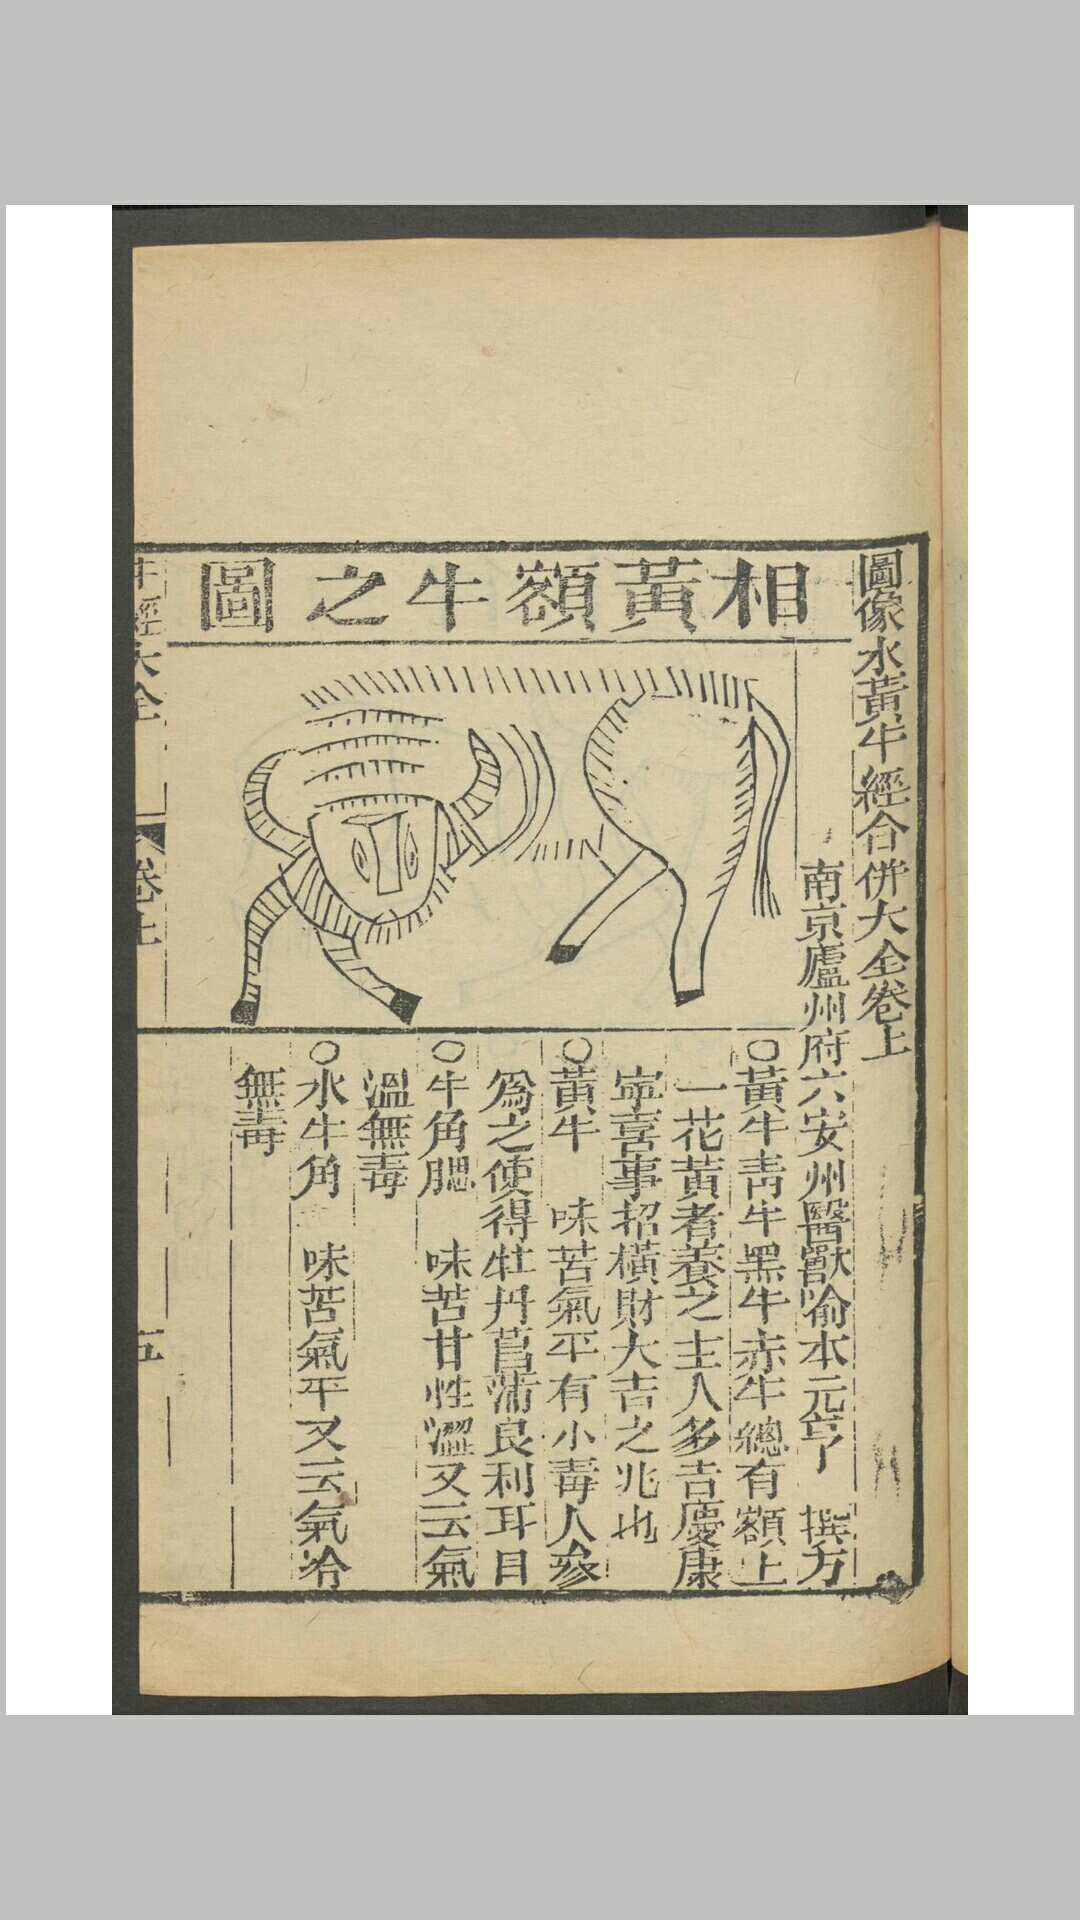 圖像水黃牛經合併大全卷上
南京廬州府六安州醫獸喻本元亨 撰方
相黃額牛之圖
○黃牛靑牛黑牛赤牛總有額上
一花黃者養之主人多吉慶康
寧喜事招橫財大吉之兆也
○黃牛 味苦氣平有小毒人參
爲之使得牡丹菖蒲良利耳目
○牛角腮 味苦甘性澀又云氣
溫無毒
○水牛角 味苦氣平又云氣冷
無毒
牛經大全 卷上 五